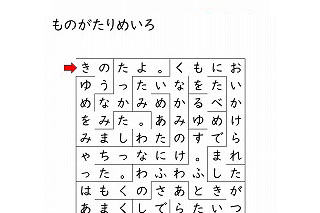 ものがたりめいろ
きのたよ。くもにお
ゆうったいなをたい
めなかみめかるべか
をみた。あみゆめけ
みましわたのすでら
ゃちっなけ。まれ
った。わふわふした
はもくのさあときが
あまくしでらたいつ